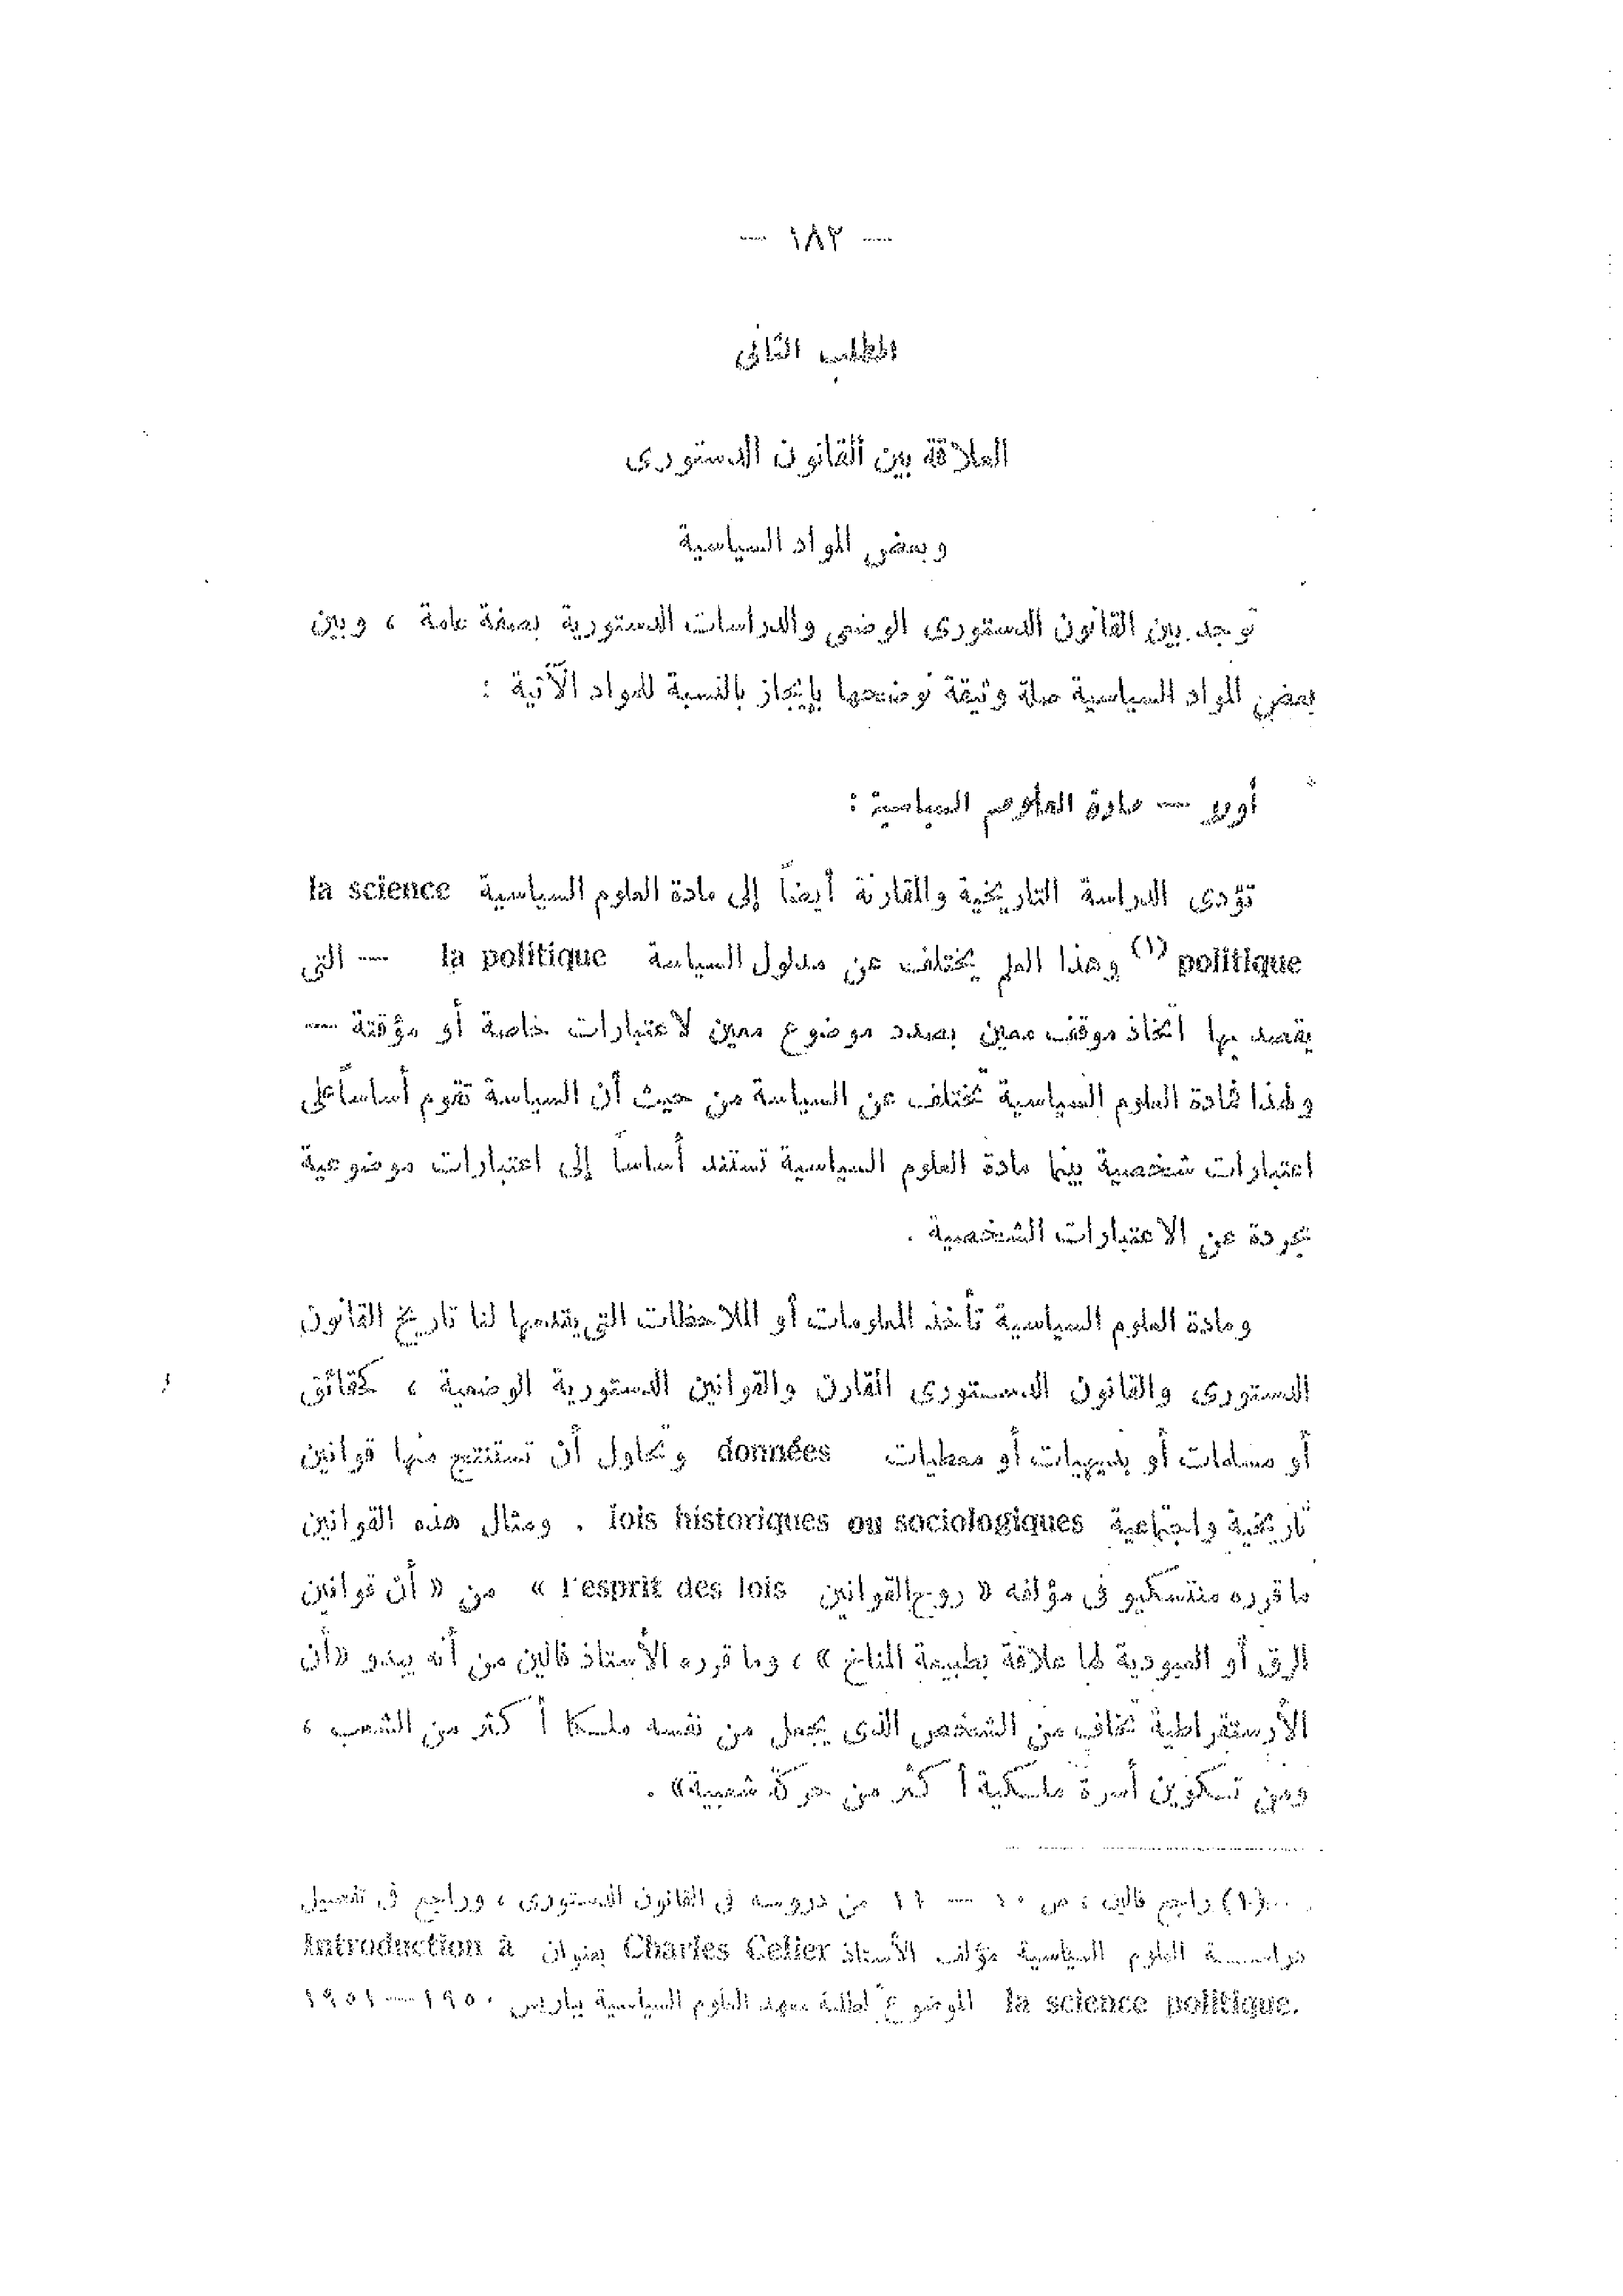 — ١٨٢ —
المطلب الثانى
العلاقة بين القانون الدستورى
وبعض المواد السياسية
توجد بين القانون الدستورى الوضعى والدراسات الدستورية بصفة عامة ، وبين
بعض المواد السياسية صلة وثيقة نوضحها بإيجاز بالنسبة للمواد الآتية :
أولا — مادة العلوم السياسية :
تؤدى الدراسة التاريخية والمقارنة أيضاً إلى مادة العلوم السياسية la science
politique (١) وهذا العلم يختلف عن مدلول السياسة la politique — التى
يقصد بها اتخاذ موقف معين بصدد موضوع معين لاعتبارات خاصة أو مؤقتة —
ولهذا فمادة العلوم السياسية تختلف عن السياسة من حيث أن السياسة تقوم أساساً على
اعتبارات شخصية بينما مادة العلوم السياسية تستند أساساً إلى اعتبارات موضوعية
مجردة عن الاعتبارات الشخصية .
ومادة العلوم السياسية تأخذ المعلومات أو الملاحظات التى يقدمها لنا تاريخ القانون
الدستورى والقانون الدستورى المقارن والقوانين الدستورية الوضعية ، كحقائق
أو مسلمات أو بديهيات أو معطيات données وتحاول أن تستنتج منها قوانين
تاريخية واجتماعية lois historiques ou sociologiques . ومثال هذه القوانين
ما قرره منتسكيو فى مؤلفه « روح القوانين l'esprit des lois » من « أن قوانين
الرق أو العبودية لها علاقة بطبيعة المناخ » ، وما قرره الأستاذ فالين من أنه يبدو «أن
الأرستقراطية تخاف من الشخص الذى يجعل من نفسه ملكا أكثر من الشعب ،
ومن تكوين أسرة ملكية أكثر من حركة شعبية» .
(١) راجع فالين ، ص ١٠ — ١١ من دروسه فى القانون الدستورى ، وراجع فى تفصيل
دراسة العلوم السياسية مؤلف الأستاذ Charles Celier بعنوان Introduction à
la science politique. الموضوع لطلبة معهد العلوم السياسية بباريس ١٩٥٠ — ١٩٥١